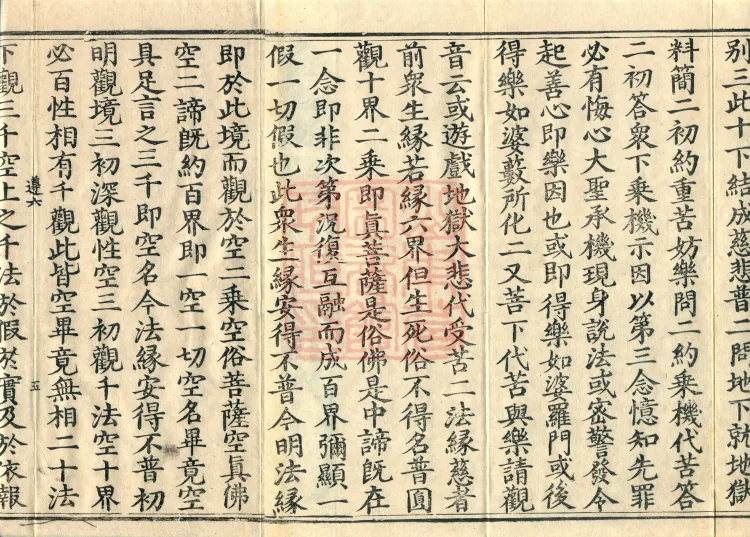 別三此十下結成慈悲普二問地下就地獄
料簡二初約重苦妨樂問二約乘機代苦答
二初答衆下乘機示因以第三念憶知先罪
必有悔心大聖承機現身説法或密警發令
起善心即樂因也或即得樂如婆羅門或後
得樂如婆藪所化二又菩下代苦與樂請觀
音云或遊戲地獄大悲代受苦二法緣慈者
前衆生緣若緣六界但生死俗不得名普圓
觀十界二乘即眞菩薩是俗佛是中諦旣在
一念即非次第況復互融而成百界彌顯一
假一切假也此衆生緣安得不普今明法緣
即於此境而觀於空二乘空俗菩薩空眞佛
空二諦旣約百界即一空一切空名畢竟空
具足言之三千即空名今法緣安得不普初
明觀境三初深觀性空三初觀千法空十界
必百性相有千觀此皆空畢竟無相二十法
遵六 五
下觀三千空上之千法於假於實及於依報